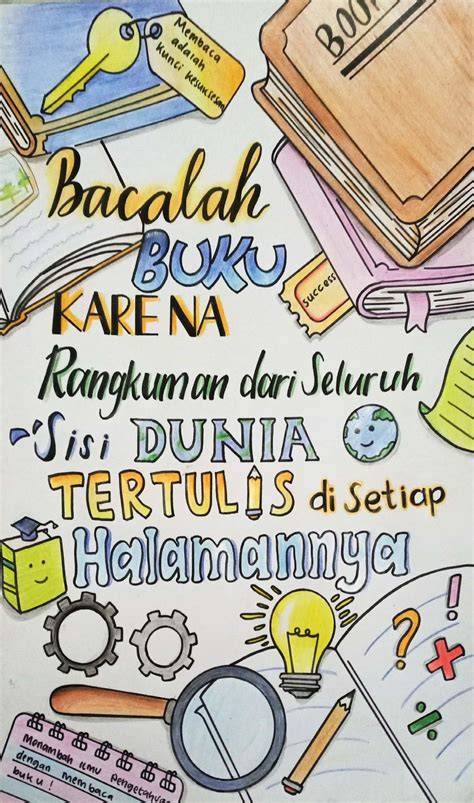 Membaca
adalah
kunci kesuksesan
BOOK
Bacalah
BUKU
success
KARENA
Rangkuman dari Seluruh
Sisi DUNIA
TERTULIS di Setiap
Halamannya
? !
× ÷
Menambah Ilmu Pengetahuan
dengan membaca
buku!